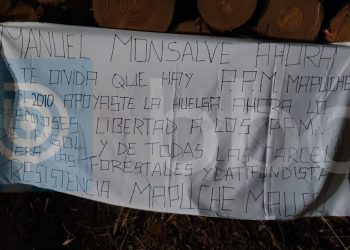 MANUEL MONSALVE AHORA
TE OLVIDA QUE HAY P.P.M MAPUCHE
2010 APOYASTE LA HUELGA. AHORA LO
LIBERTAD A LOS P.P.M.
Y DE TODAS LAS
LAS FORESTALES Y LATIFUNDISTA
RESISTENCIA MAPUCHE MALLEKO